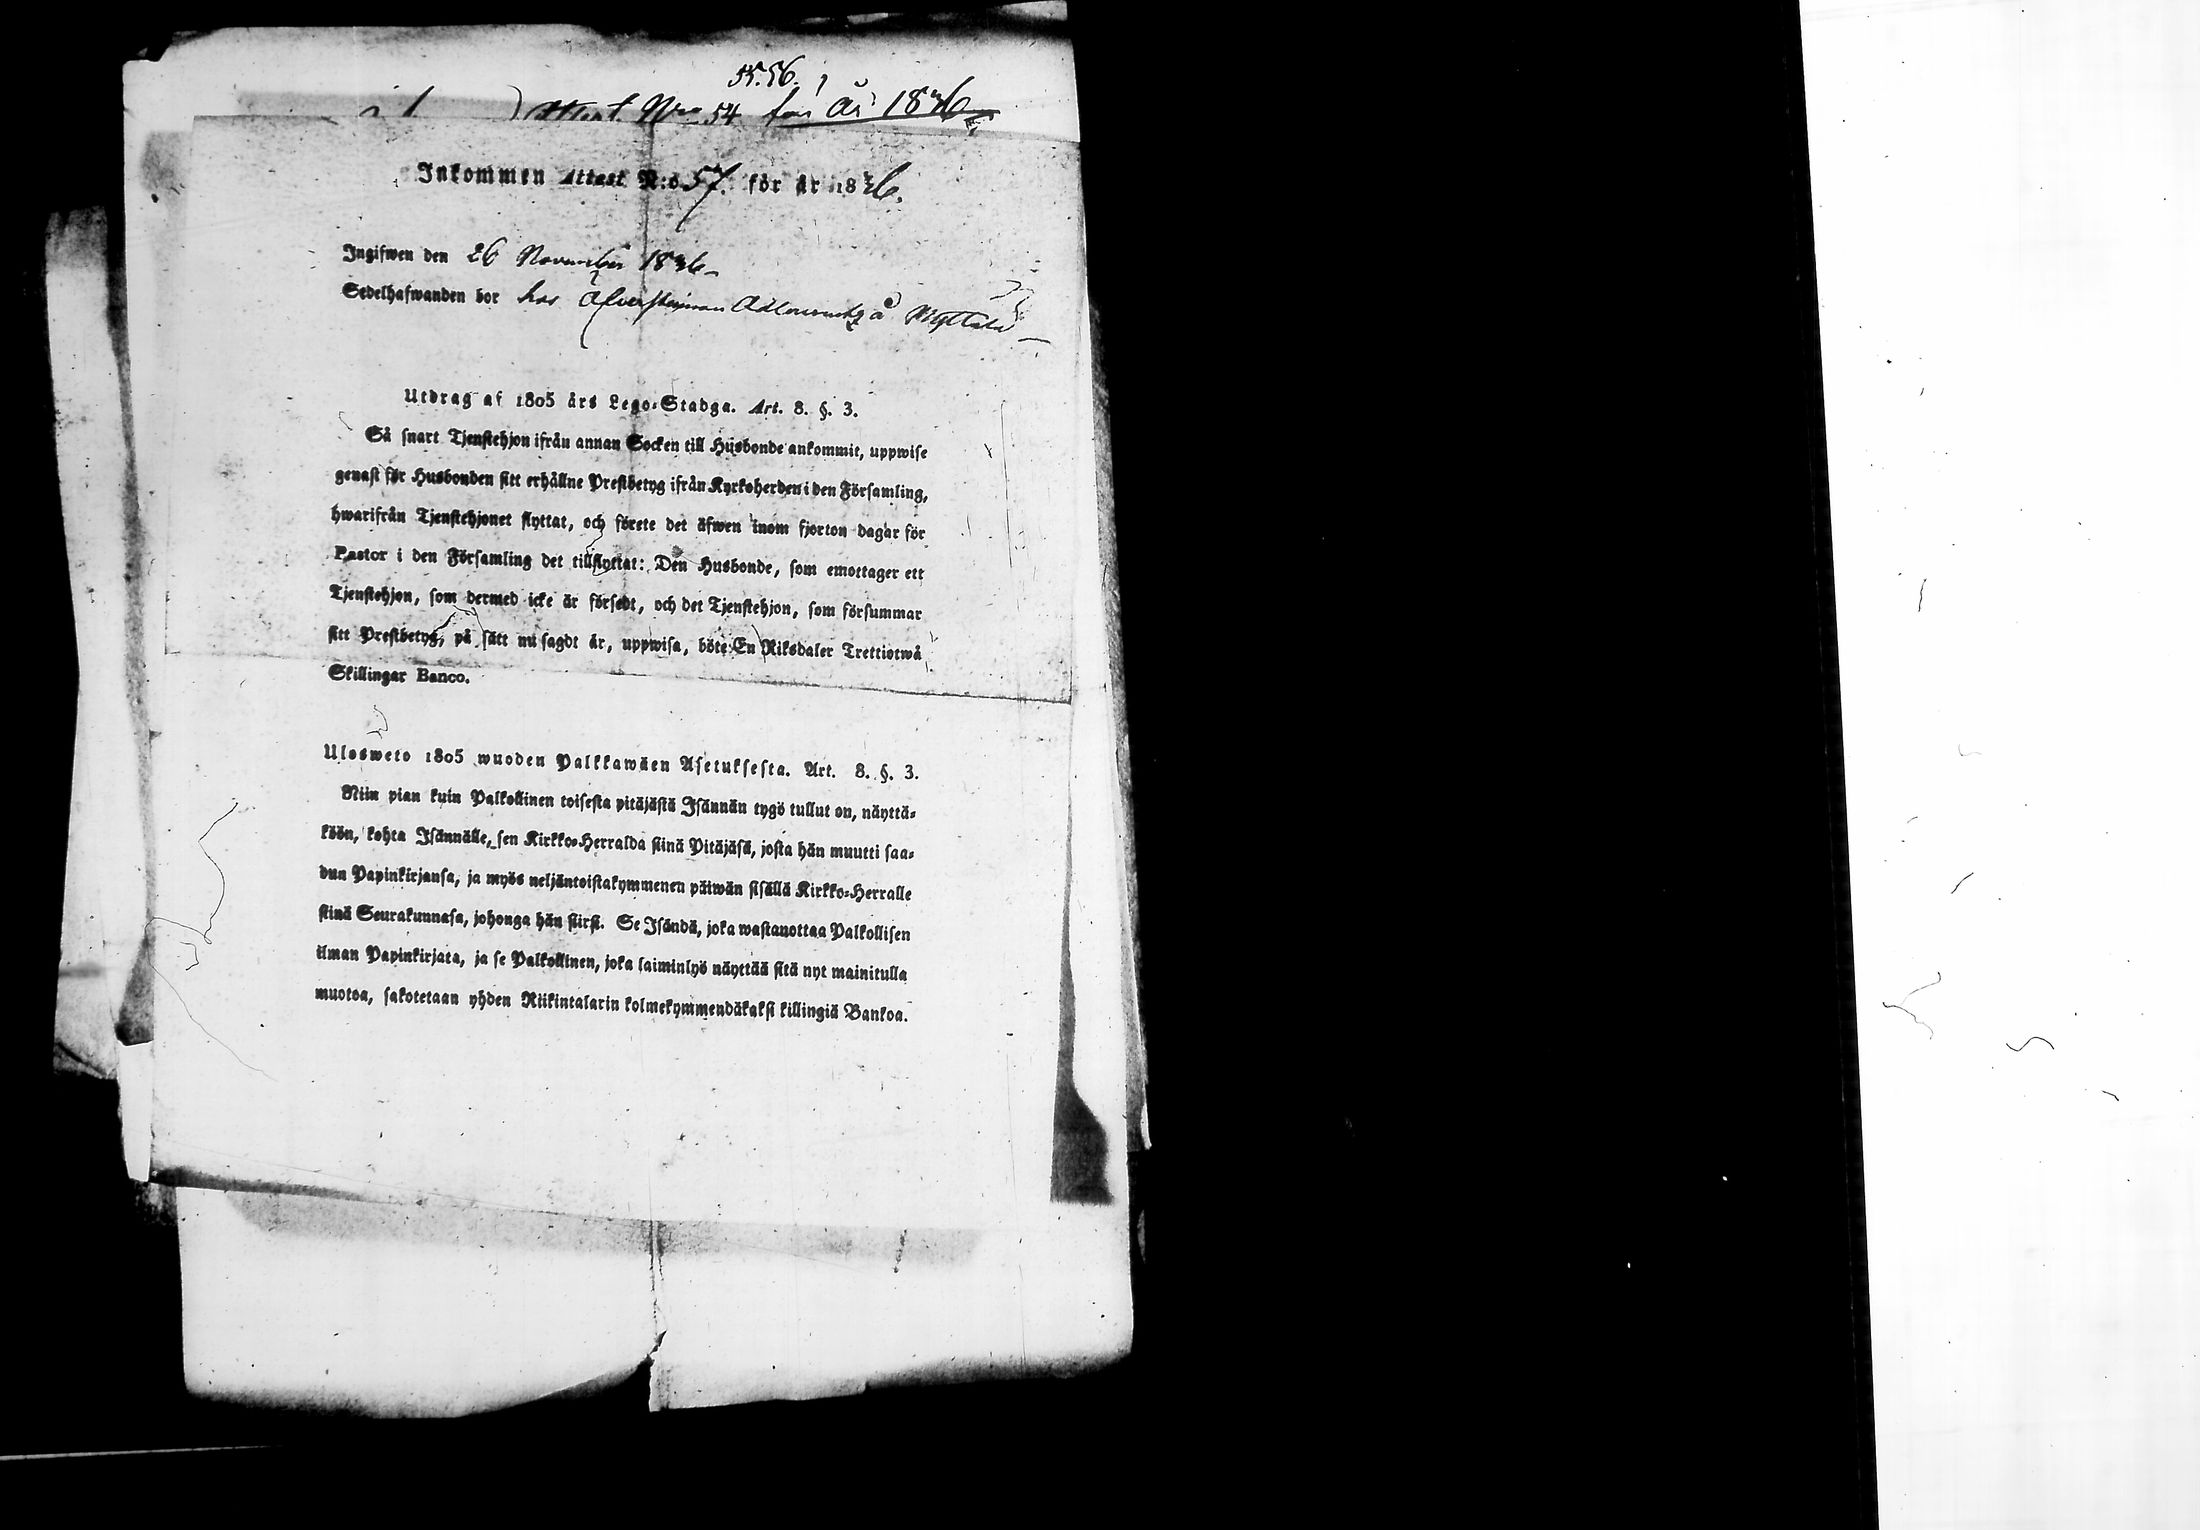 55. 56.
Attest Nro 54 för År 1846
Inkommen Attest N:o 57. för år 1846.
Ingifwen den 26 November 1846
Sedelhafwanden bor hos å
Utdrag af 1805 års Lego-Stadga. Art. 8. §. 3.
Så snart Tjenstehjon ifrån annan Socken till Husbonde ankommit, uppwise
genast för Husbonden sitt erhållne Prestbetyg ifrån Kyrkoherden i den Församling,
hwarifrån Tjenstehjonet flyttat, och förete det äfwen inom fjorton dagar för
Pastor i den Församling det tillflyttat: Den Husbonde, som emottager ett
Tjenstehjon, som dermed icke är försedt, och det Tjenstehjon, som försummar
sitt Prestbetyg, på sätt nu sagdt är, uppwisa, böte En Riksdaler Trettiotwå
Skillingar Banco.
Ulosweto 1805 wuoden Palkkawäen Asetuksesta. Art. 8. §. 3.
Niin pian kuin Palkollinen toisesta pitäjästä Isännän tygö tullut on, näyttä-
köön, kohta Isännälle, sen Kirkko-Herralda siinä Pitäjäsä, josta hän muutti saa-
dun Papinkirjansa, ja myös neljäntoistakymmenen päiwän sisällä Kirkko-Herralle
siinä Seurakunnasa, johonga hän siirsi. Se Isändä, joka wastanottaa Palkollisen
ilman Papinkirjata, ja se Palkollinen, joka laiminlyö näyttää sitä nyt mainitulla
muotoa, sakotetaan yhden Riikintalarin kolmekymmendäkaksi killingiä Bankoa.